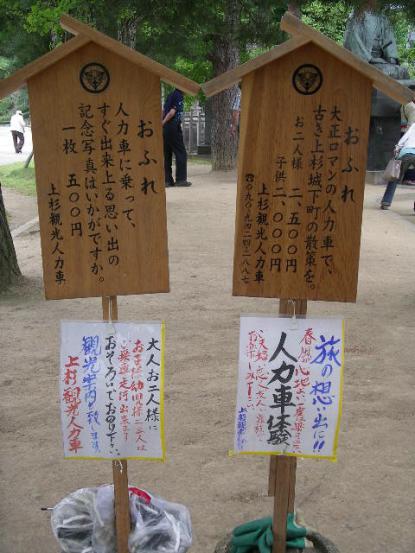 おふれ
大正ロマンの人力車で、
古き上杉城下町の散策を。
お二人様 二、五〇〇円
子供 二、〇〇〇円
上杉観光人力車
おふれ
人力車に乗って、
すぐ出来上る思い出の
記念写真はいかがですか。
一枚 五〇〇円
上杉観光人力車
旅の想い出に!!
人力車体験
大人お二人様に
おそろいでお乗り下さい
観光案内も致します
上杉観光人力車